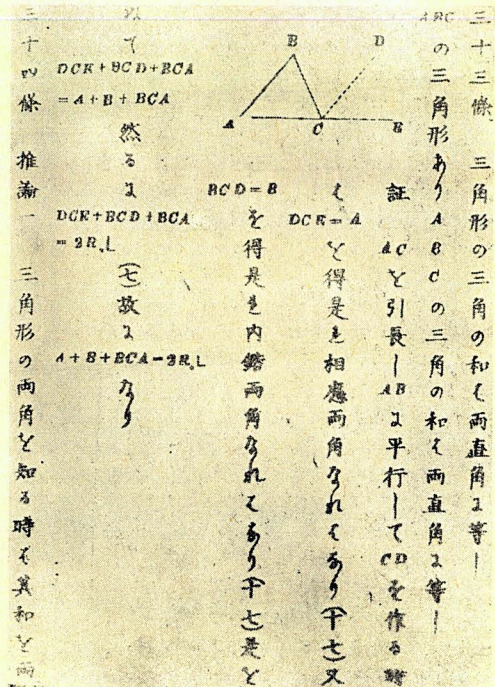 三十三條 三角形の三角の和ハ両直角ニ等し
ABCの三角形ありABCの三角の和ハ両直角ニ等し
証 ACを引長しABニ平行してCDを作る時
ハDCE=Aを得是レ相應両角なれハなり(十七)又
BCD=Bを得是レ内錯両角なれハなり(十七)是を
以て
B
D
A
C
E
DCE+BCD+BCA
=A+B+BCA
然るニ
DCE+BCD+BCA
=2R.L
(七)故ニ
A+B+BCA=2R.L
なり
三十四條 推論一 三角形の両角を知る時ハ其和を両